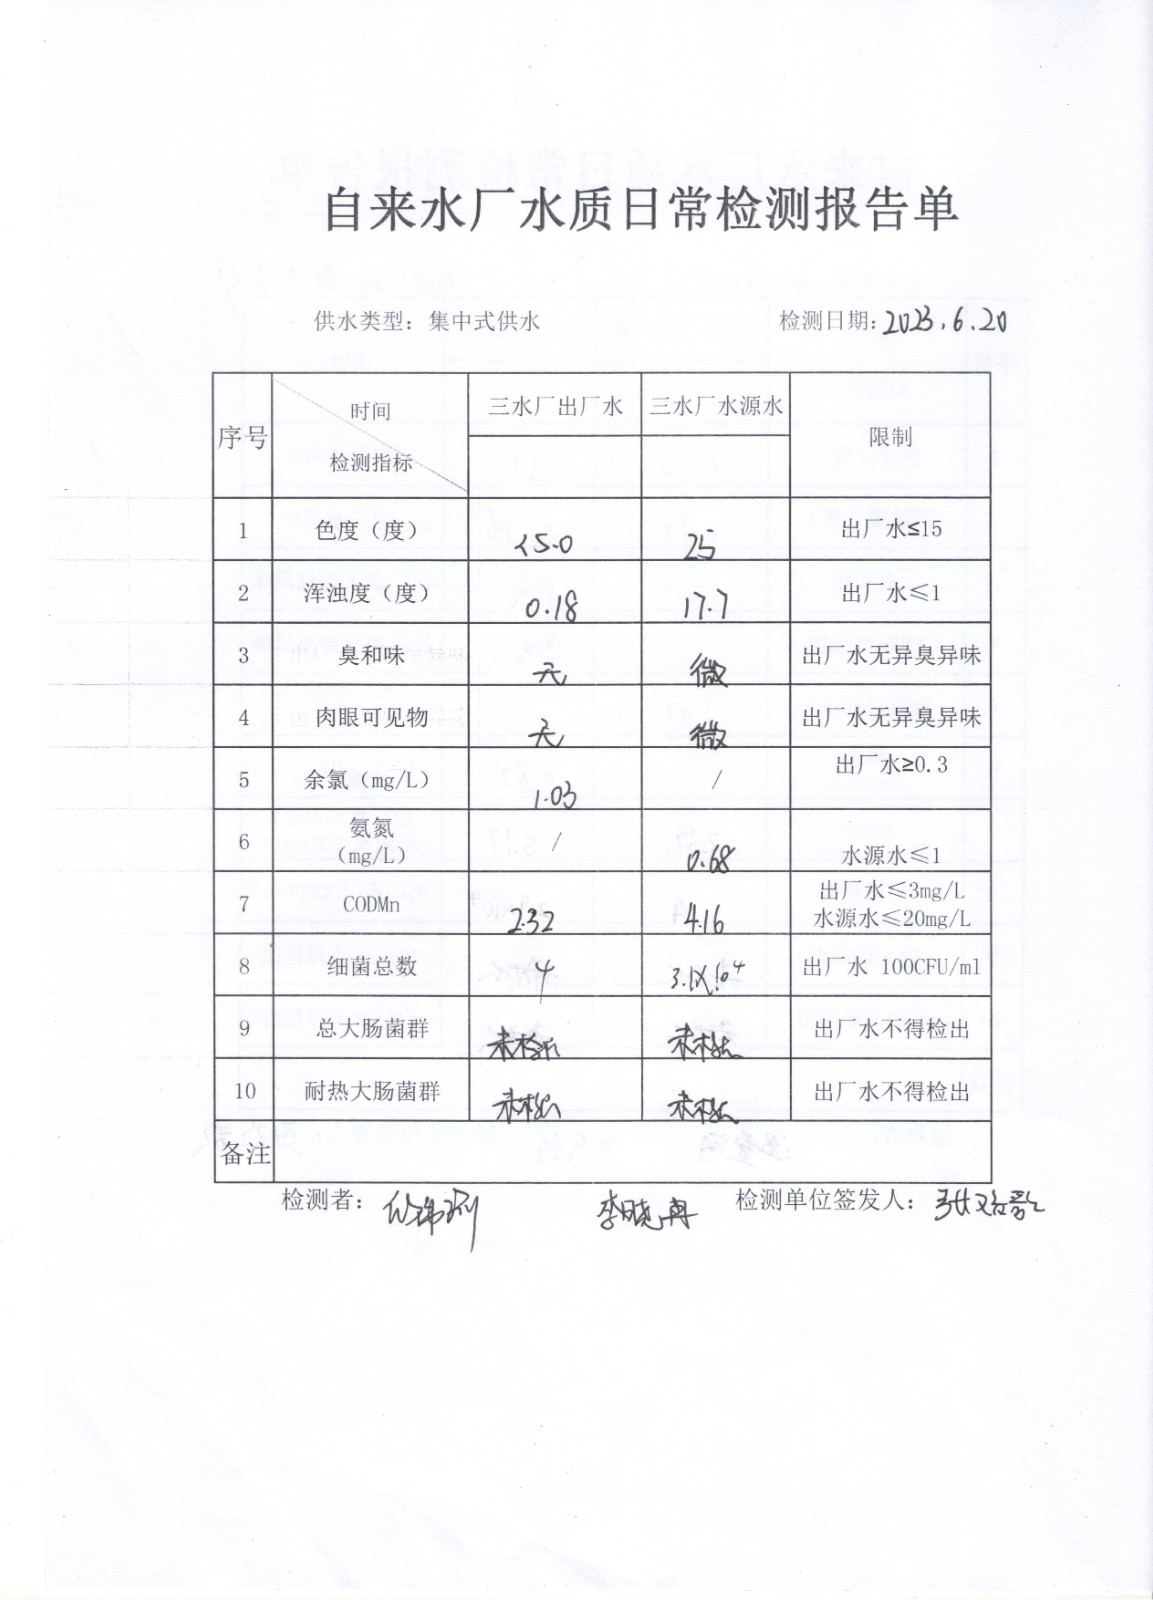 自来水厂水质日常检测报告单
供水类型：集中式供水 检测日期：2023.6.20
序号 时间 检测指标 三水厂出厂水 三水厂水源水 限制
1 色度（度） <5.0 25 出厂水≤15
2 浑浊度（度） 0.18 17.7 出厂水≤1
3 臭和味 无 微 出厂水无异臭异味
4 肉眼可见物 无 微 出厂水无异臭异味
5 余氯（mg/L） 1.03 / 出厂水≥0.3
6 氨氮（mg/L） / 0.68 水源水≤1
7 CODMn 2.32 4.16 出厂水≤3mg/L
水源水≤20mg/L
8 细菌总数 4 出厂水 100CFU/ml
9 总大肠菌群 未检出 未检出 出厂水不得检出
10 耐热大肠菌群 未检出 未检出 出厂水不得检出
备注
检测者： 检测单位签发人：